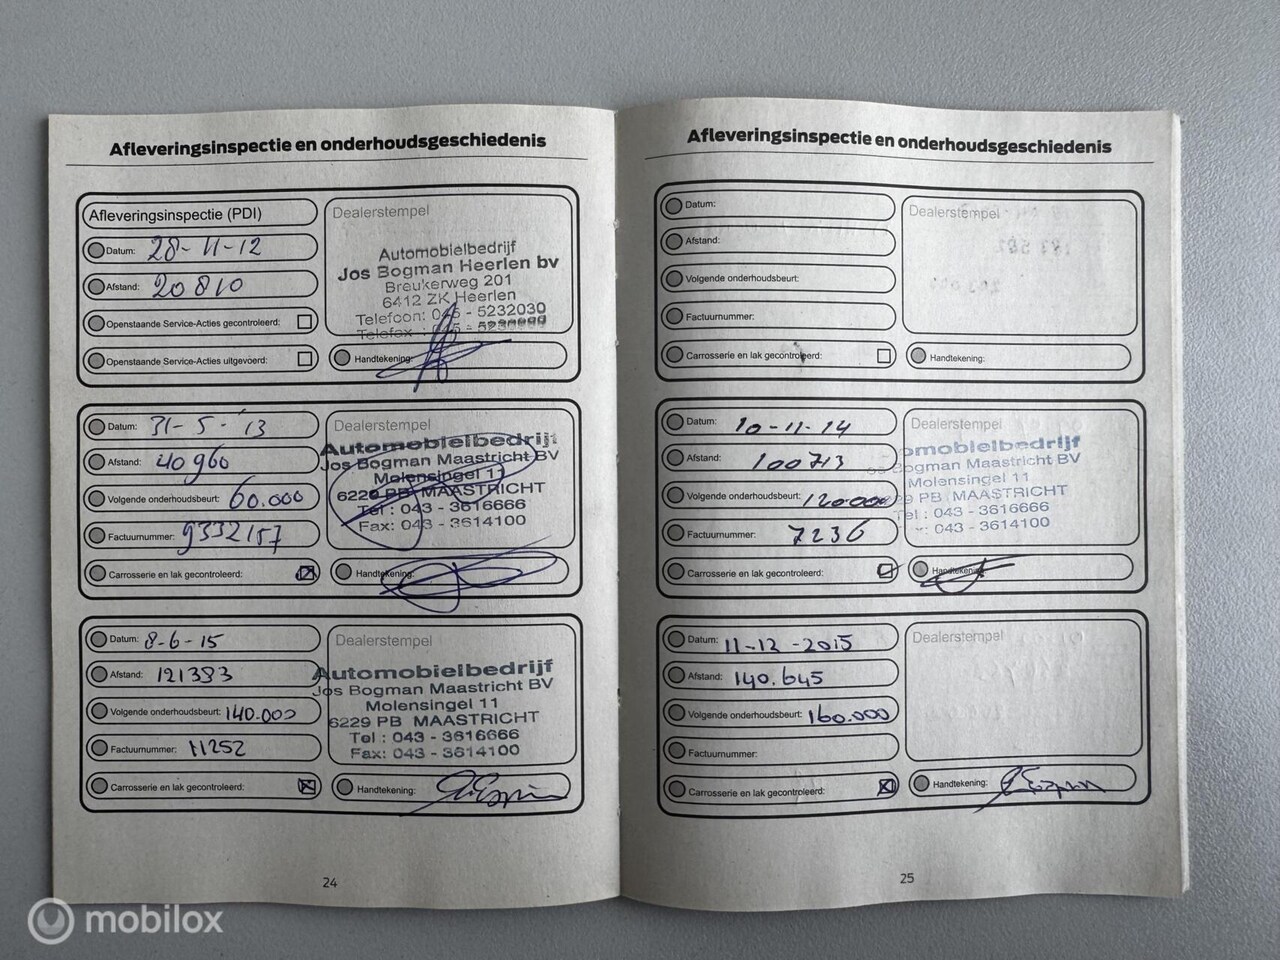 Afleveringsinspectie en onderhoudsgeschiedenis
Afleveringsinspectie (PDI)
Datum: 28-11-12
Afstand: 20810
Openstaande Service-Acties gecontroleerd:
Openstaande Service-Acties uitgevoerd:
Dealerstempel
Automobielbedrijf
Jos Bogman Heerlen bv
Breukerweg 201
6412 ZK Heerlen
Telefoon: 045 - 5232030
Telefax :
Handtekening:
Datum: 31-5-'13
Afstand: 40960
Volgende onderhoudsbeurt: 60.000
Factuurnummer: 9332157
Carrosserie en lak gecontroleerd:
Dealerstempel
Automobielbedrijf
Jos Bogman Maastricht BV
Molensingel 11
6229 PB MAASTRICHT
Tel : 043 - 3616666
Fax: 043 - 3614100
Handtekening:
Datum: 8-6-15
Afstand: 121383
Volgende onderhoudsbeurt: 140.000
Factuurnummer: 11252
Carrosserie en lak gecontroleerd:
Dealerstempel
Automobielbedrijf
Jos Bogman Maastricht BV
Molensingel 11
6229 PB MAASTRICHT
Tel : 043 - 3616666
Fax: 043 - 3614100
Handtekening:
24
Afleveringsinspectie en onderhoudsgeschiedenis
Datum:
Afstand:
Volgende onderhoudsbeurt:
Factuurnummer:
Carrosserie en lak gecontroleerd:
Dealerstempel
Handtekening:
Datum: 10-11-14
Afstand: 100713
Volgende onderhoudsbeurt: 120.000
Factuurnummer: 7236
Carrosserie en lak gecontroleerd:
Dealerstempel
omobielbedrijf
os Bogman Maastricht BV
Molensingel 11
29 PB MAASTRICHT
Tel : 043 - 3616666
x: 043 - 3614100
Handtekening:
Datum: 11-12-2015
Afstand: 140.645
Volgende onderhoudsbeurt: 160.000
Factuurnummer:
Carrosserie en lak gecontroleerd:
Dealerstempel
Handtekening:
25
mobilox